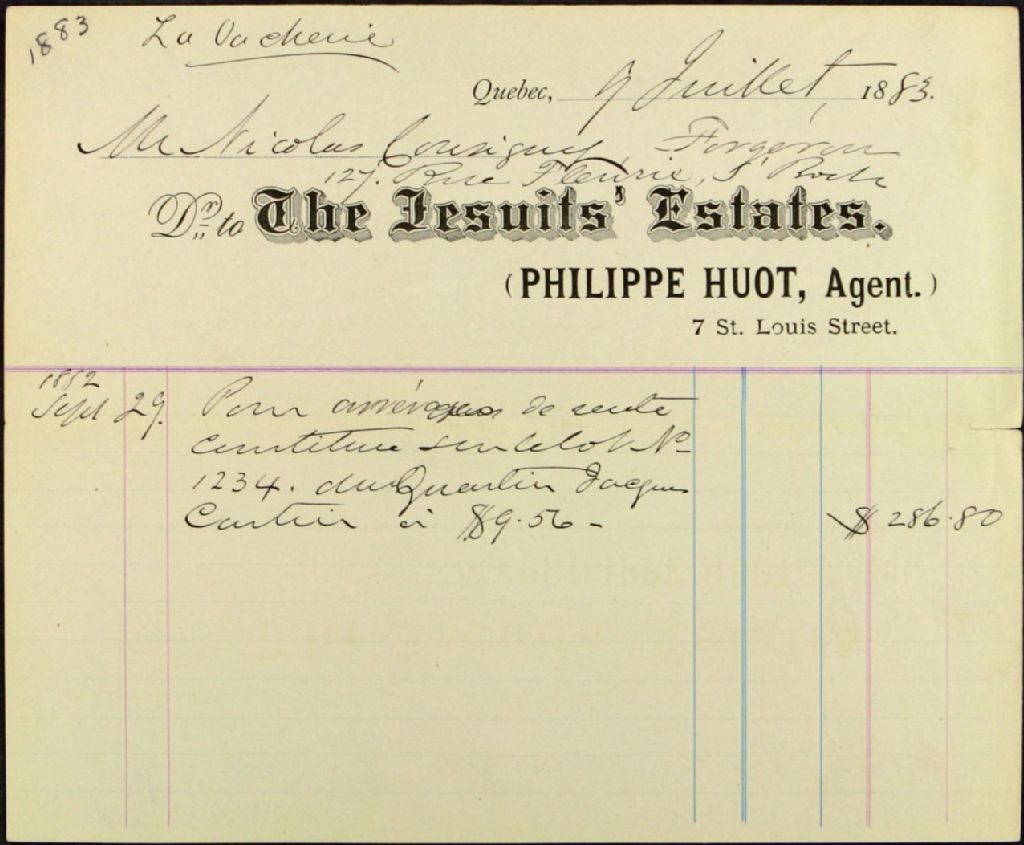 1883
La Vacherie
Quebec, 9 Juillet, 1883.
Mr Nicolas Consigny Forgeron
127. Rue Fleurie, St Roch
Dr. to The Jesuits' Estates.
(PHILIPPE HUOT, Agent.)
7 St. Louis Street.
1882
Sept 29. Pour arrérages de rente
constituée sur le lot No
1234. du Quartier Jacques
Cartier à $9.56 - $ 286.80